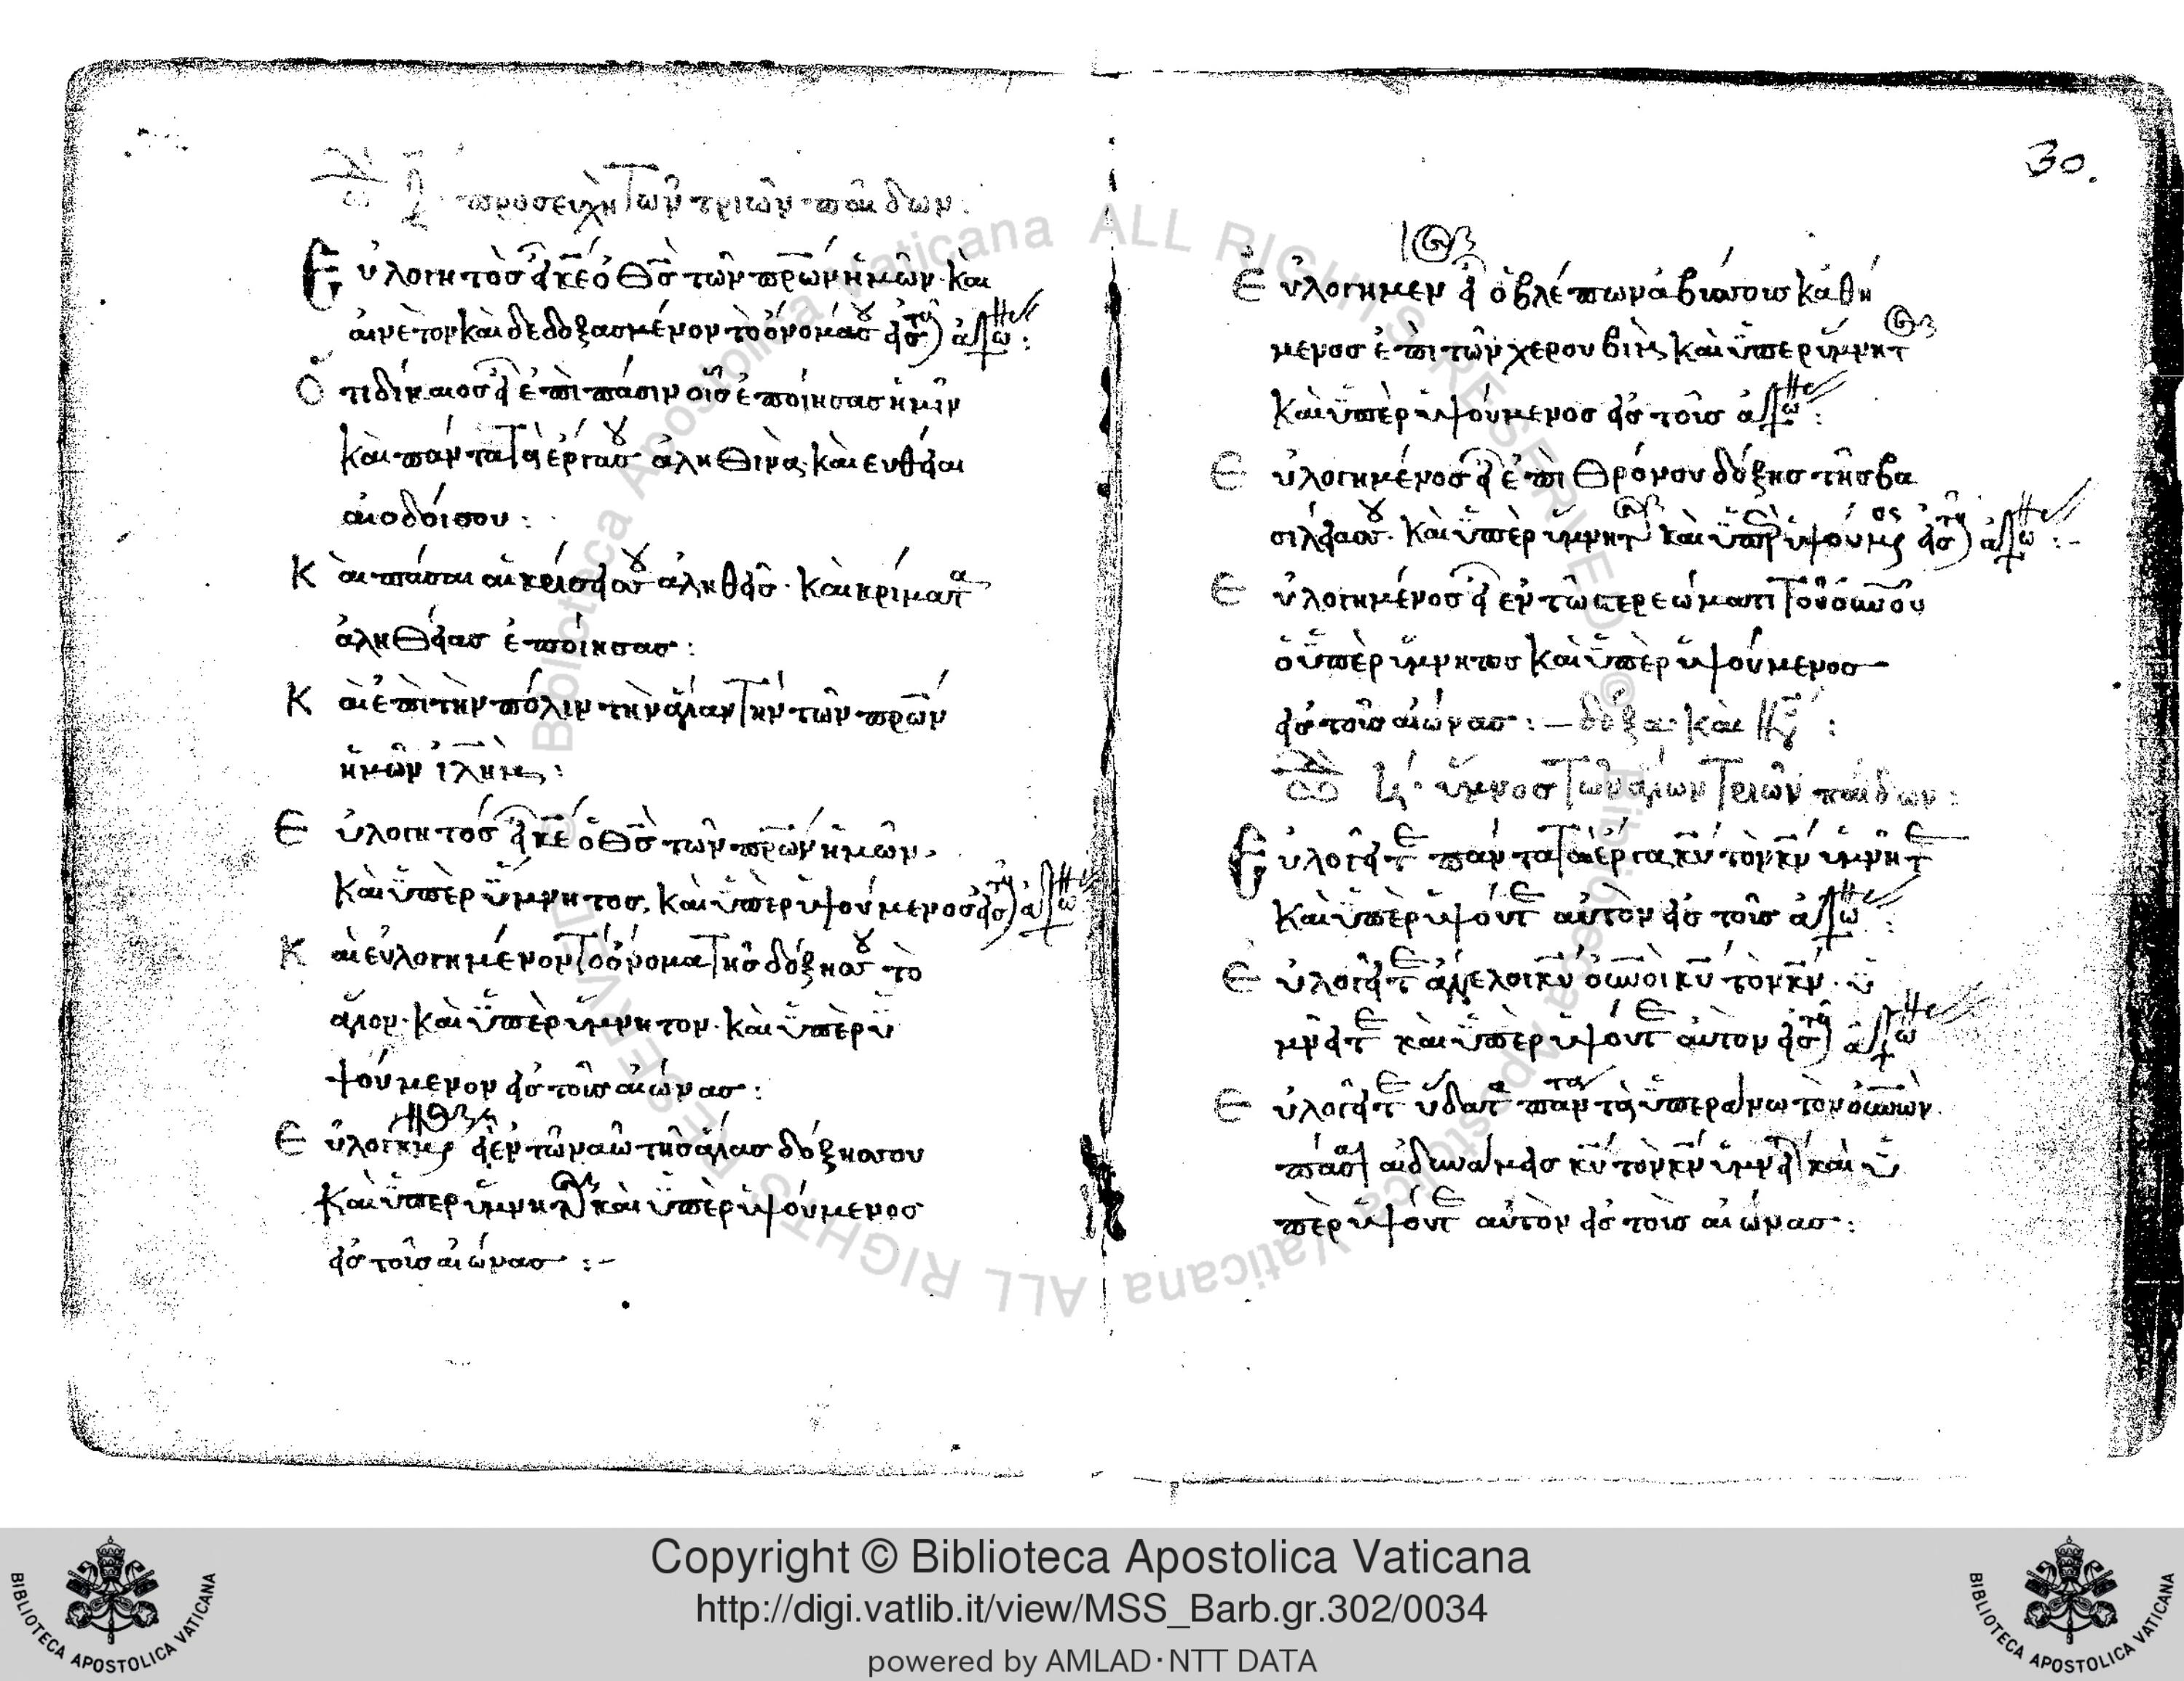 ὠδὴ ζ · προσευχὴ τῶν τριῶν παίδων :
Εὐλογητὸσ εἶ κε ὁ θσ τῶν πρων ἡμῶν · καὶ
αἰνετὸν καὶ δεδοξασμένον τὸ ὄνομά σου εἰς τοὺς αἰῶ :
Ὅτι δίκαιοσ εἶ ἐπὶ πάσιν οἷσ ἐποίησασ ἡμῖν
καὶ πάντα τὰ ἔργα σου ἀληθινὰ, καὶ ευθεῖαι
αἱ οδοί σου :
Καὶ πάσαι αἱ κρίσεισ σου ἀληθεῖσ · καὶ κρίματα
ἀληθείασ ἐποίησασ :
Καὶ ἐπὶ τὴν πόλιν τὴν ἁγίαν τὴν τῶν πρων
ἡμῶν ιλημ :
Εὐλογητόσ εἶ κε ὁ θσ τῶν πρων ἡμῶν,
καὶ ὑπὲρ ὕμνητοσ, καὶ ὑπὲρ υψούμενοσ εἰσ τοὺς αἰῶ
Καὶ εὐλογημένον τὸ ὄνομα τῆσ δόξησ σου τὸ
ἅγιον · καὶ ὑπὲρ ύμνητον · καὶ ὑπὲρ ὑ
ψούμενον εἰσ τοὺσ αἰώνασ :
Εὐλογημένος εἶ ἐν τῶ ναῶ τῆσ ἁγίασ δόξησ σου
καὶ ὑπερ ύμνητος καὶ ὑπὲρ υψούμενοσ
εἰσ τοὺσ αἰώνασ :-
30.
Εὐλογημένος εἶ ὁ βλέπων ἀβύσσουσ καθή
μενοσ ἐπὶ τῶν χερουβιμ, καὶ ὑπερ ύμνητος
καὶ ὑπὲρ υψούμενοσ εἰσ τοὺσ αἰῶ :
Εὐλογημένοσ εἶ ἐπὶ θρόνου δόξησ τῆσ βα
σιλείασ σου · καὶ ὑπὲρ ύμνητος καὶ ὑπὲρ υψούμενος εἰσ τοὺς αἰῶ :-
Εὐλογημένοσ εἶ ἐν τῶ στερεώματι τοῦ ουνου
ὁ ὑπὲρ ύμνητοσ καὶ ὑπὲρ υψούμενοσ
εἰσ τοὺσ αἰώνασ :– δόξα · καὶ νῦν :
ὠδὴ η · ὕμνοσ τῶν ἁγίων τριῶν παίδων :
Εὐλογεῖτε πάντα τὰ ἔργα κυ τὸν κν ὑμνεῖτε
καὶ ὑπὲρ υψούτε αὐτὸν εἰσ τοὺσ αἰῶ :
Εὐλογεῖτε ἄγγελοι κυ οὐνοὶ κυ τὸν κν · ὑ
μνεῖτε καὶ ὑπὲρ υψούτε αὐτον εἰσ τοὺς αἰῶ
Εὐλογεῖτε ὕδατα πάντα τὰ ὑπεράνω τῶν οὐνῶν
πάσαι αἱ δυνάμεισ κυ τὸν κν ὑμνεῖτε καὶ ὑ
πὲρ υψούτε αὐτὸν εἰσ τοὺσ αἰώνασ :
Copyright © Biblioteca Apostolica Vaticana
http://digi.vatlib.it/view/MSS_Barb.gr.302/0034
powered by AMLAD·NTT DATA
BIBLIOTECA APOSTOLICA VATICANA
BIBLIOTECA APOSTOLICA VATICANA
© Biblioteca Apostolica Vaticana ALL RIGHTS RESERVED © Biblioteca Apostolica Vaticana ALL RIGHTS RESERVED